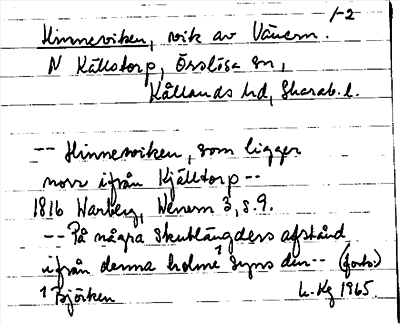 1-2
Hinneviken, vik av Vänern.
N Källstorp, Örslösa sn,
Kållands hd, Skarab. l.
-- Hinneviken, som ligger
norr ifrån Kjälltorp --
1816 Warberg, Wenern 3, s. 9.
-- På några skuttlängders afstånd
ifrån denna holme¹ syns den -- (forts.)
¹ Björken
L. Kg 1965.